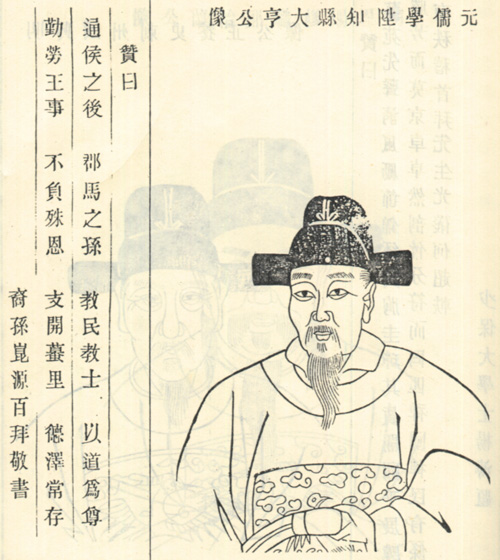 元儒學陞知縣大亨公像
贊曰
通侯之後 郡馬之孫 教民教士 以道爲尊
勤勞王事 不負殊恩 支開里 德澤常存
裔孫崑源百拜敬書